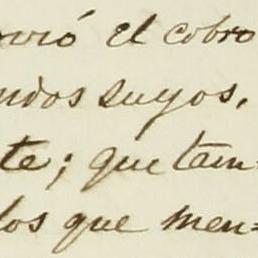 ovió el cobro
ndos suyos,
te; que tam=
los que men=